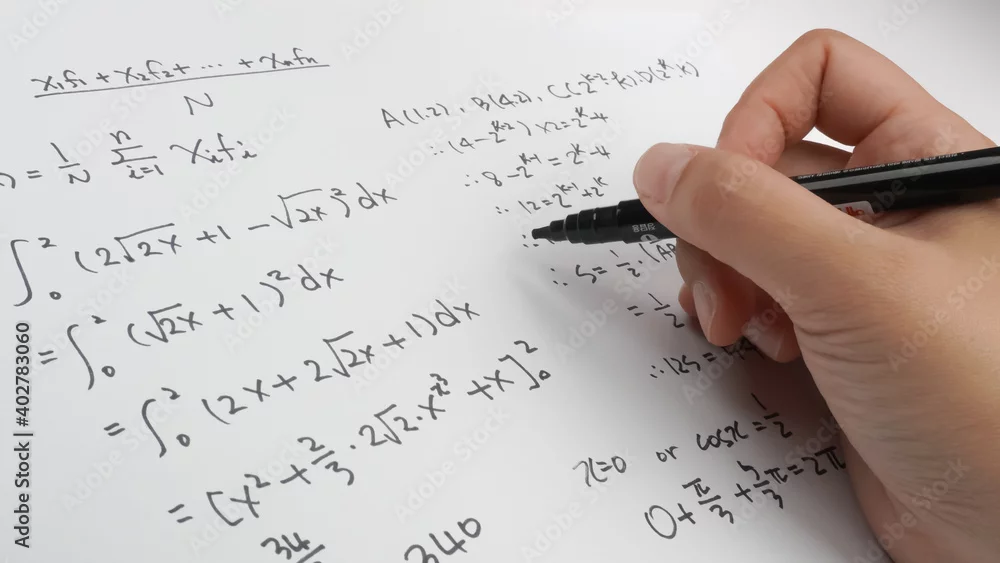 x₁f₁ + x₂f₂ + ... + xₙfₙ
N
= 1/N n Σ i=1 xᵢfᵢ
∫₀² (2√2x + 1 - √2x)² dx
= ∫₀² (√2x + 1)² dx
= ∫₀² (2x + 2√2x + 1) dx
= [x² + 2/3 · 2√2 · x^(3/2) + x]₀²
34
340
A(1,2), B(4,2), C(2^(k-2), k), D(2^k, k)
∴ (4 - 2^(k-2)) × 2 = 2^k - 4
∴ 8 - 2^(k-1) = 2^k - 4
∴ 12 = 2^(k-1) + 2^k
∴
∴ S = 1/2 · (A
= 1/2
∴ 12S =
x = 0 or cosx = 1/2
0 + π/3 + 5/3π = 2π
Adobe Stock | #402783060